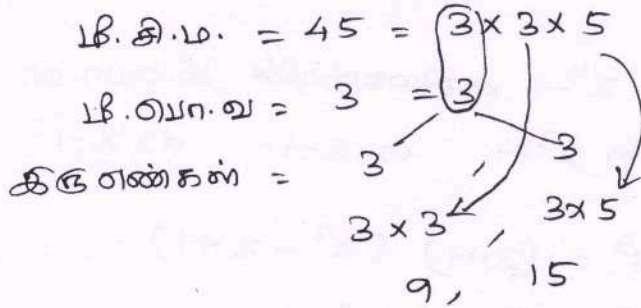 மீ.சி.ம. = 45 = 3 x 3 x 5
மீ.பொ.வ = 3 = 3
இரு எண்கள் = 3 , 3
3 x 3 , 3 x 5
9, 15